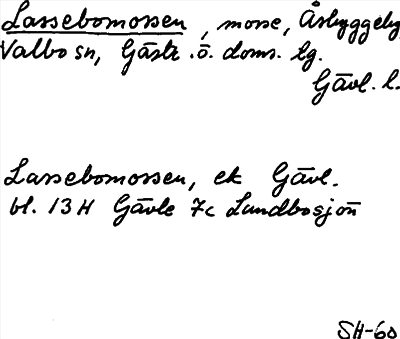 Lassebomossen, mosse, Åsbyggeby
Valbo sn, Gästr. ö. doms. lg.
Gävl. l.
Lassebomossen, ek Gävl.
bl. 13H Gävle 7c Lundbosjön
SH-60